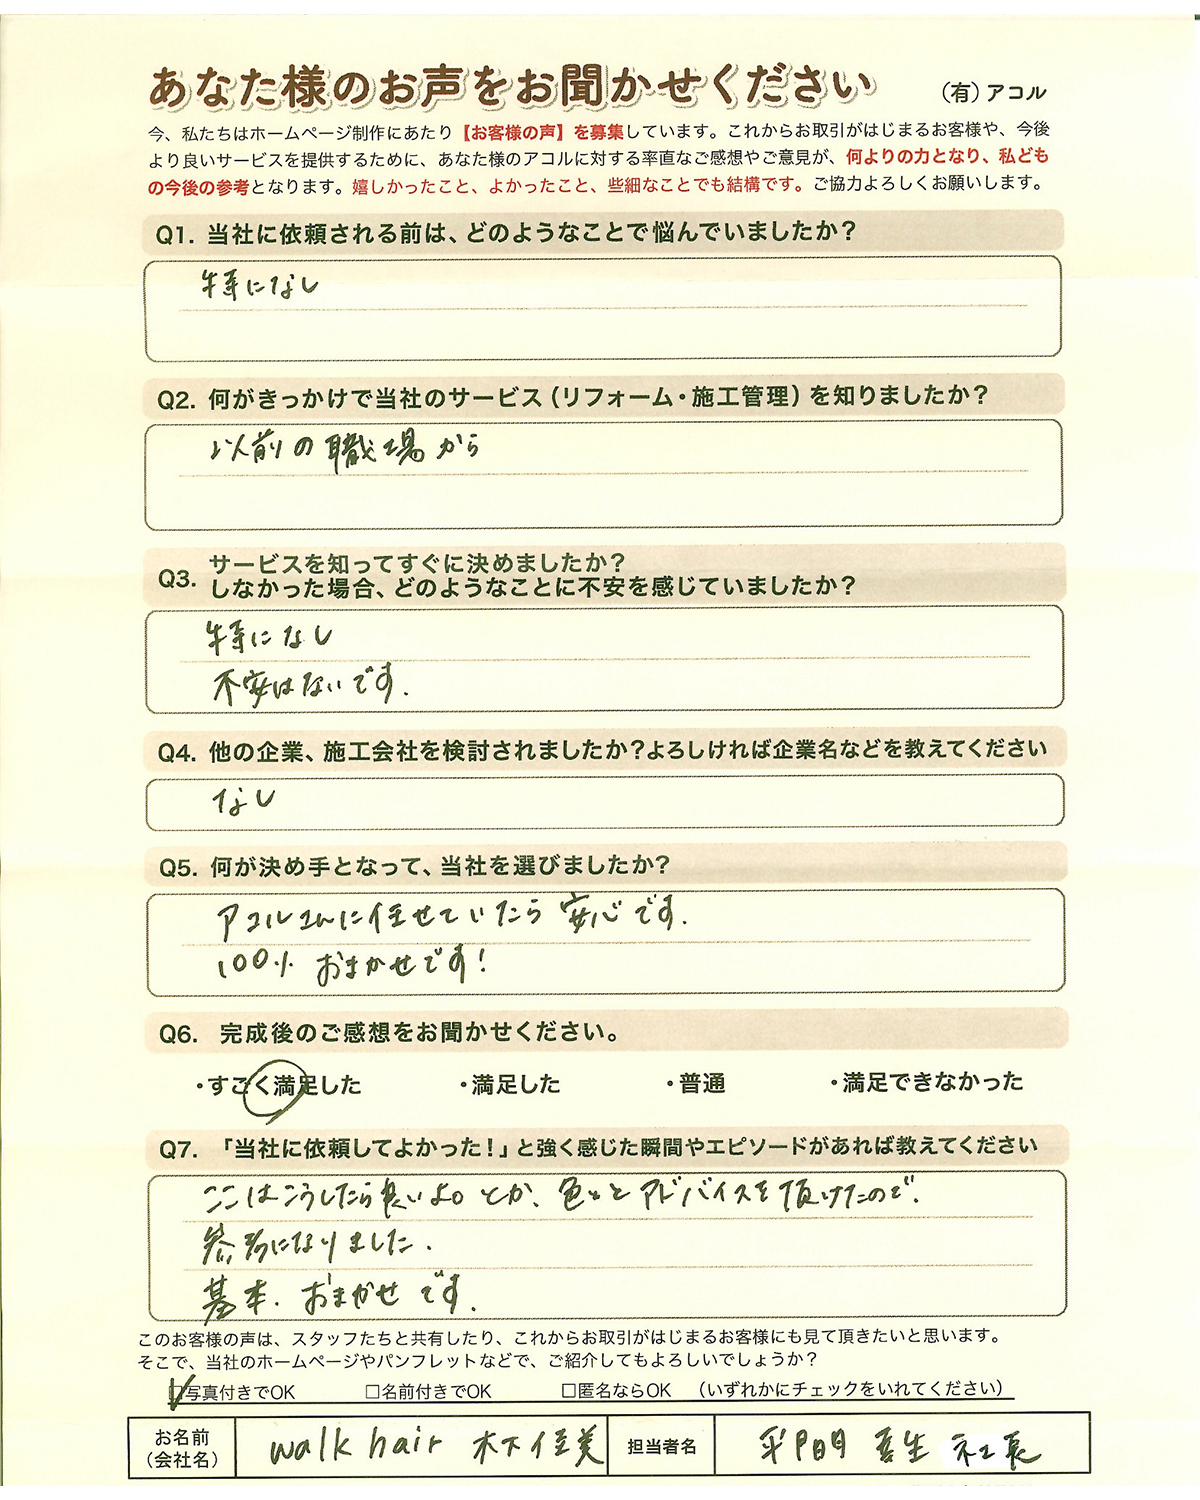 あなた様のお声をお聞かせください (有)アコル
今、私たちはホームページ制作にあたり【お客様の声】を募集しています。これからお取引がはじまるお客様や、今後
より良いサービスを提供するために、あなた様のアコルに対する率直なご感想やご意見が、何よりの力となり、私ども
の今後の参考となります。嬉しかったこと、よかったこと、些細なことでも結構です。ご協力よろしくお願いします。
Q1. 当社に依頼される前は、どのようなことで悩んでいましたか?
特になし
Q2. 何がきっかけで当社のサービス(リフォーム・施工管理)を知りましたか?
以前の職場から
Q3. サービスを知ってすぐに決めましたか?
しなかった場合、どのようなことに不安を感じていましたか?
特になし
不安はないです.
Q4. 他の企業、施工会社を検討されましたか?よろしければ企業名などを教えてください
なし
Q5. 何が決め手となって、当社を選びましたか?
アコルさんに任せていたら安心です.
100% おまかせです!
Q6. 完成後のご感想をお聞かせください。
・すごく満足した ・満足した ・普通 ・満足できなかった
Q7. 「当社に依頼してよかった!」と強く感じた瞬間やエピソードがあれば教えてください
ここはこうしたら良いよ。とか、色々とアドバイスを頂けたので、
参考になりました.
基本、おまかせです.
このお客様の声は、スタッフたちと共有したり、これからお取引がはじまるお客様にも見て頂きたいと思います。
そこで、当社のホームページやパンフレットなどで、ご紹介してもよろしいでしょうか?
☑写真付きでOK □名前付きでOK □匿名ならOK (いずれかにチェックをいれてください)
お名前
(会社名) walk hair 木下佳美 担当者名 喜生 社長